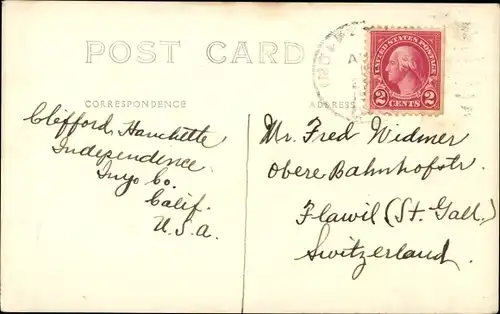 POST CARD
CORRESPONDENCE
ADDRESS
UNITED STATES POSTAGE
2 CENTS 2
Clifford, Hanchette
Independence
Inyo Co.
Calif.
U.S.A.
Mr. Fred Widmer
Obere Bahnhofstr.
Flawil (St. Gall.)
Switzerland.